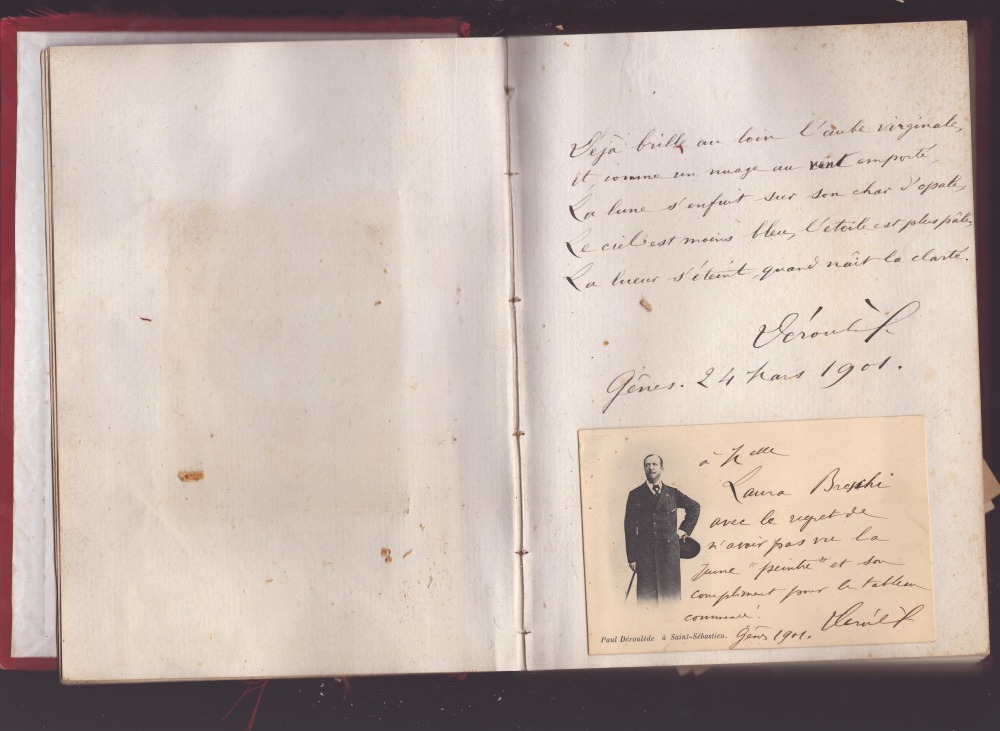 Déjà brille au loin l'aube virginale,
Et, comme un nuage au vent emporté,
La lune s'enfuit sur son char d'opale,
Le ciel est moins bleu, l'étoile est plus pâle,
La lueur s'éteint, quand naît la clarté.
Gênes. 24 Mars 1901.
à Melle
Laura
avec le regret de
n'avoir pas vu la
Jeune "peintre" et son
compliment pour le tableau
Paul Déroulède à Saint-Sébastien.
Gênes 1901.